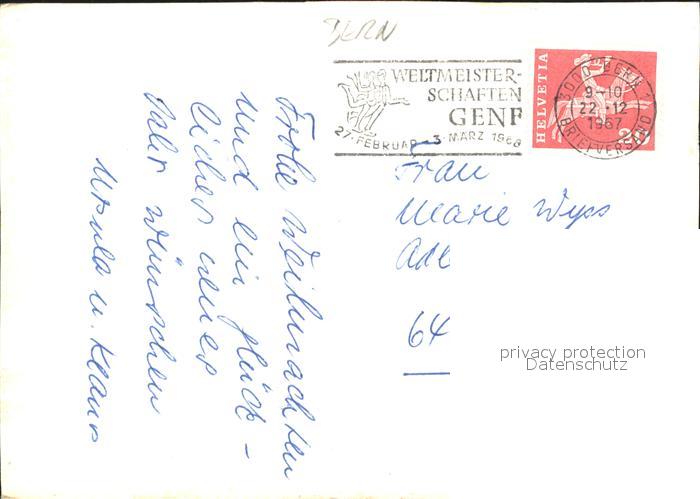 BERN
WELTMEISTER-
SCHAFTEN
GENF
27. FEBRUAR - 3. MÄRZ 1968
HELVETIA
3000 BERN 1
9-10
22.-12
1967
BRIEFVERSAND
Frohe Weihnachten
und ein glück-
liches neues
Jahr wünschen
Ursula u. Klaus
Frau
Marie Wyss
64
privacy protection
Datenschutz